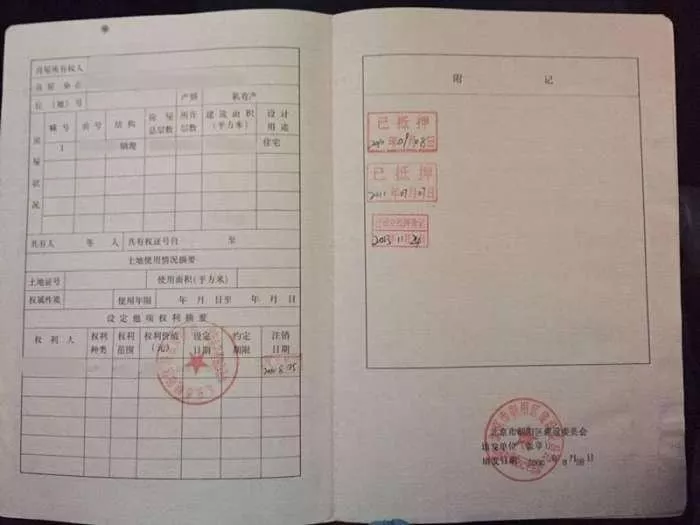 房屋所有权人
房屋坐落
丘（地）号 产别 私有产
房屋状况 幢号 房号 结构 房屋总层数 所在层数 建筑面积（平方米） 设计用途
1 钢混 住宅
共有人 等 人 共有权证号自 至
土地使用情况摘要
土地证号 使用面积（平方米）
权属性质 使用年限 年 月 日至 年 月 日
设定他项权利摘要
权利人 权利种类 权利范围 权利价值（元） 设定日期 约定期限 注销日期
附 记
已抵押
年09月08日
已抵押
2011年07月07日
2013 11
北京市朝阳区建设委员会
填发单位（盖章）
填发日期：